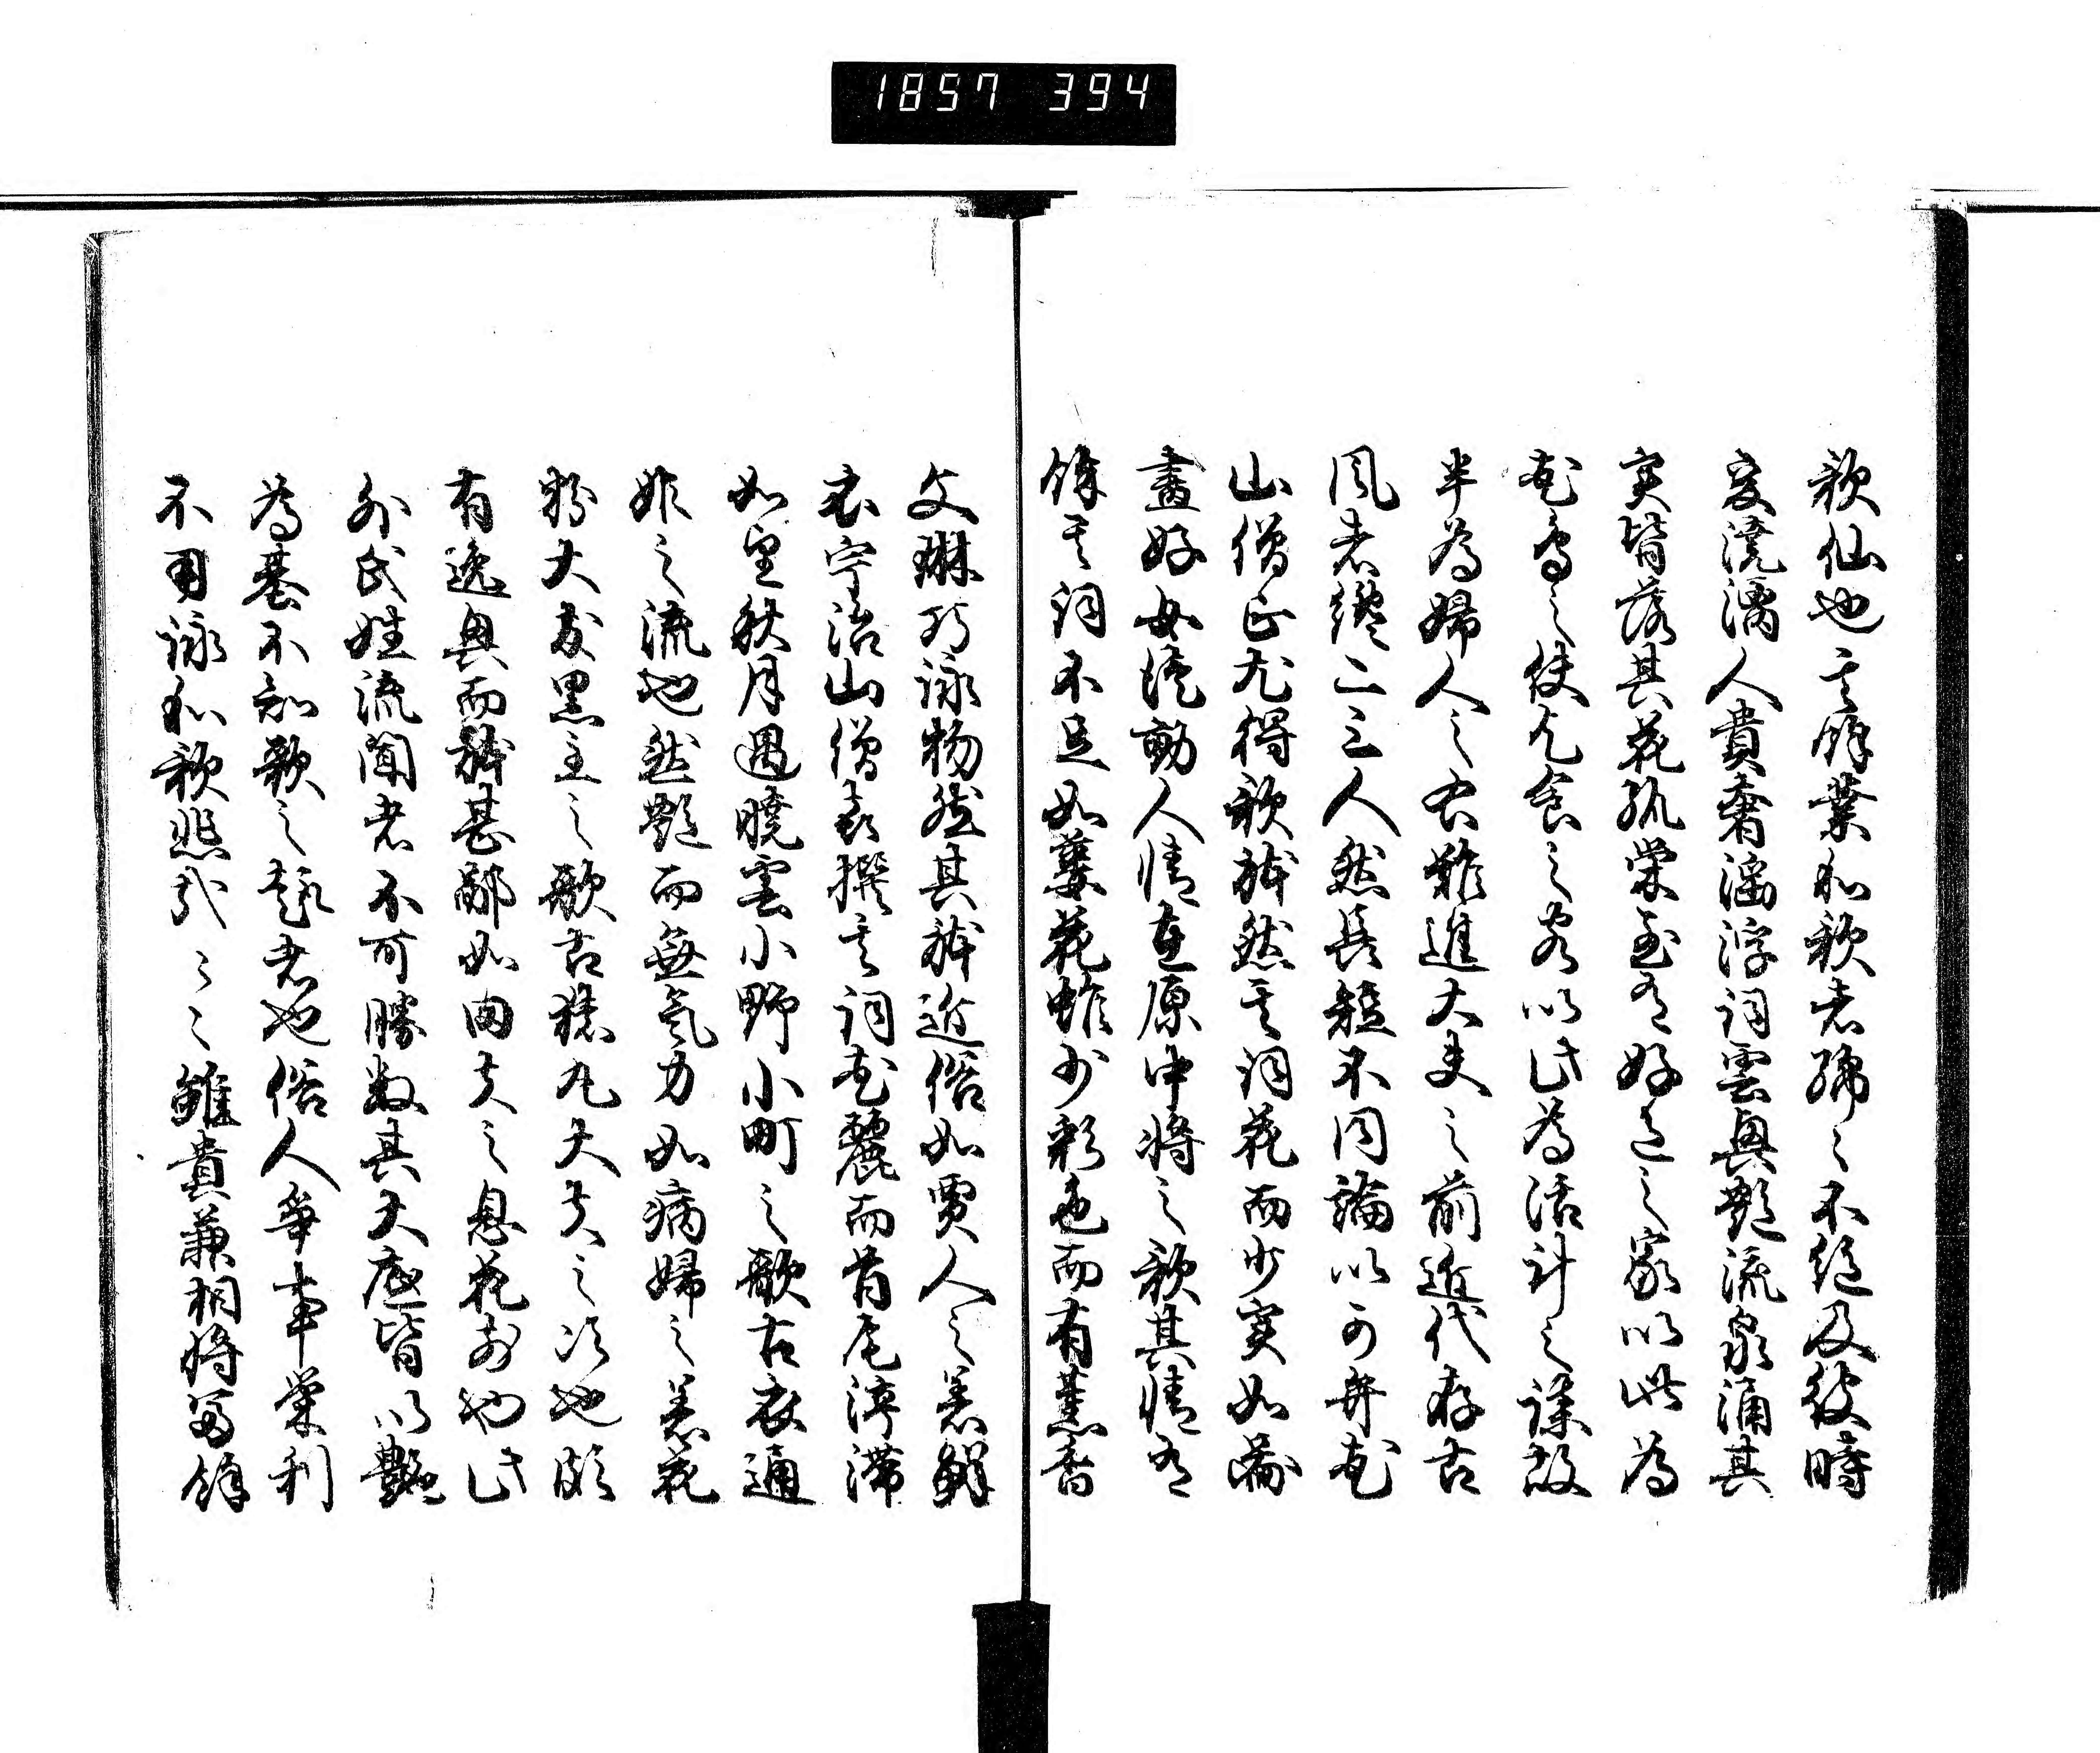 1857 394
歌仙也其餘業和歌者綿々不絶及彼時
変澆漓人貴奢淫浮詞雲興艶流泉涌其
実皆落其花孤栄至有好色之家以此為
花鳥之使乞食之客以此為活計之謀故
半為婦人之右難進大夫之前近代存古
風者纔二三人然長短不同論以可弁花
山僧正尤得歌躰然其詞花而少実如圖
畫好女徒動人情在原中将之歌其情有
餘其詞不足如萎花雖少彩色而有薫香
文琳巧詠物然其躰近俗如賈人之着鮮
衣宇治山僧喜撰其詞花麗而首尾渟滞
如望秋月遇暁雲小野小町之歌古衣通
姫之流也然艶而無気力如病婦之着花
粉大友黒主之歌古猿丸大夫之次也頗
有逸興而躰甚鄙如田夫之息花前也此
外氏姓流聞者不可勝数其大底皆以艶
為基不知歌之趣者也俗人争事栄利
不用詠和歌悲哉々々雖貴兼相将冨餘